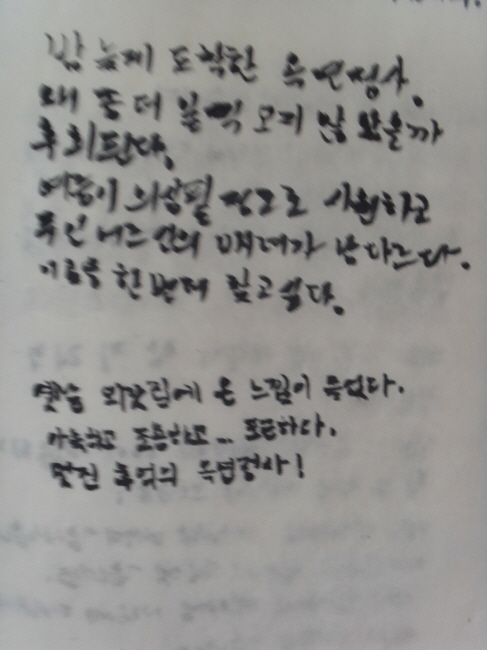 밤 늦게 도착한 옥연정사.
왜 좀 더 일찍 오지 않았을까
후회된다.
여름이 의심될 정도로 시원하고
주인 어르신의 배려가 남다르다.
다음에 한번 더 찾고 싶다.
옛날 외갓집에 온 느낌이 든다.
아늑하고 조용하고... 포근하다.
멋진 추억의 옥연정사!